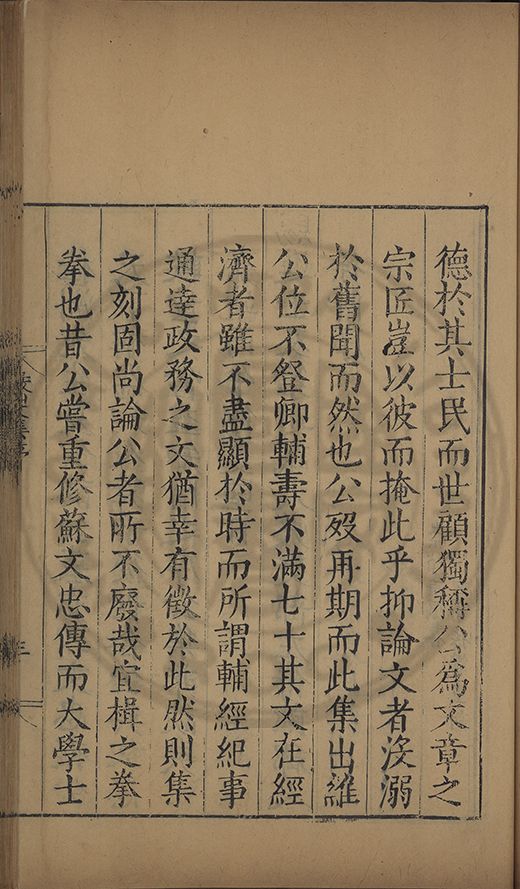 德於其士民而世顧獨稱公爲文章之
宗匠豈以彼而掩此乎抑論文者沒溺
於舊聞而然也公歿再期而此集出雖
公位不登卿輔壽不滿七十其文在經
濟者雖不盡顯於時而所謂輔經紀事
通達政務之文猶幸有徵於此然則集
之刻固尚論公者所不廢哉宜楫之拳
拳也昔公嘗重修蘇文忠傳而大學士